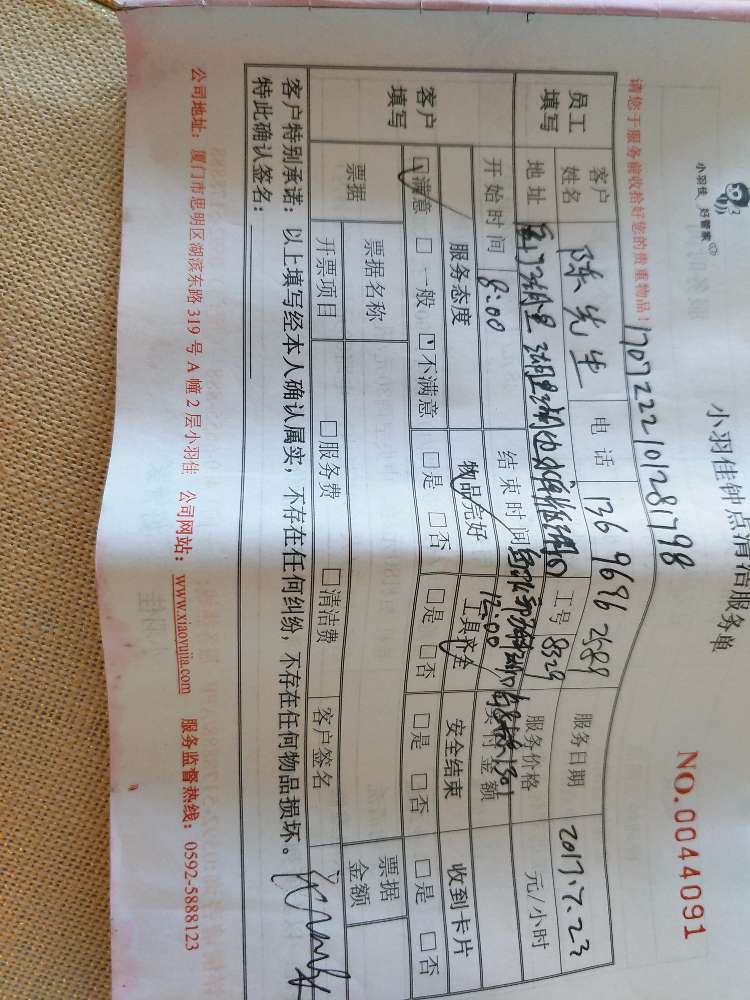 小羽佳 好管家
小羽佳钟点清洁服务单
NO.0044091
请您于服务前收拾好您的贵重物品！
1707222101281798
员工填写
客户姓名 陈先生 电话 136 9696 2689 服务日期 2017.7.23
地址 工号 8329 服务价格 元/小时
开始时间 8:00 结束时间 12:00 实付金额
客户填写
服务态度 物品完好 工具齐全 安全结束 收到卡片
☑满意 □一般 □不满意 □是 □否 □是 □否 □是 □否 □是 □否
票据 票据名称 票据金额
开票项目 □服务费 □清洁费 客户签名
客户特别承诺：以上填写经本人确认属实，不存在任何纠纷，不存在任何物品损坏。
特此确认签名：
公司地址：厦门市思明区湖滨东路 319 号 A 幢 2 层小羽佳 公司网站：www.xiaoyujia.com 服务监督热线：0592-5888123